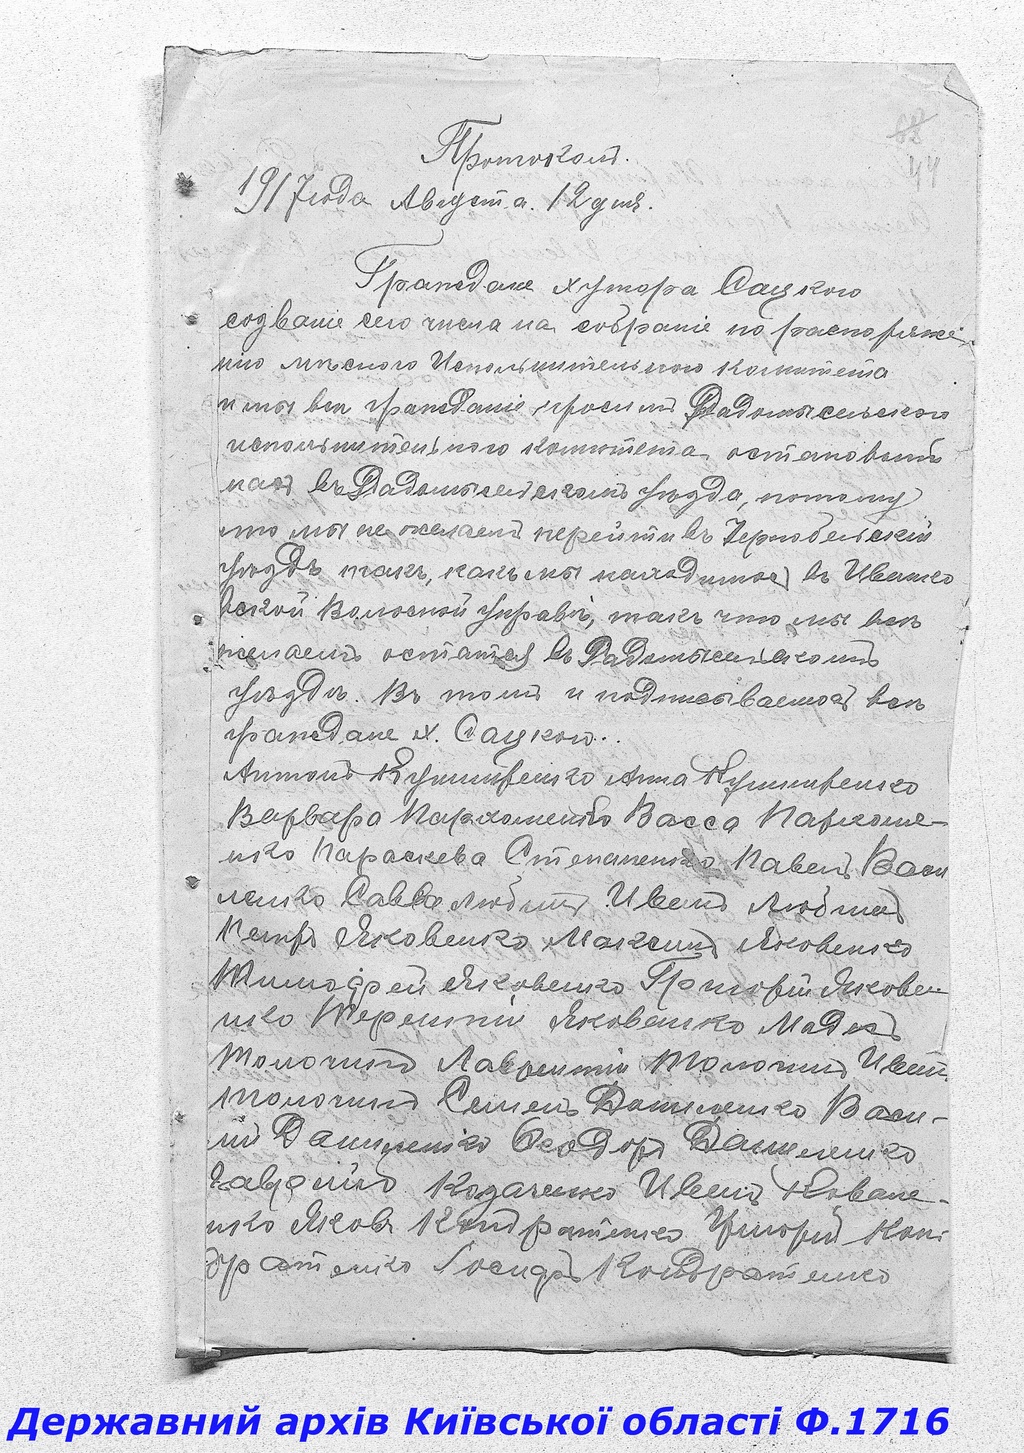 Протоколъ.
68
44
1917 года Августа. 12 дня.
Граждане хутора Сацкого
созваніе сего числа на собраніе по распоряже-
нію мѣсного Исполнительного комитета
и мы всѣ гражданіе просимъ Радомысельского
исполнительного комитета остановить
насъ въ Радомысельскомъ уѣзда, потому
што мы не желаемъ перейти въ Чернобельскій
уѣздъ такъ, какъ мы находимся въ Иванко
вской Волосной Управѣ, такъ что мы всѣ
желаемъ остатся въ Радомысельскомъ
уѣздѣ. Въ томъ и подписываемся всѣ
граждане х. Сацкого..
Антонъ Кушниренко Анна Кушниренко
Варвара Пархоменко Васса Пархоме-
нко Параскева Степаненко Павелъ Васи
ленко Савва Любимъ Иванъ Любимъ
Петръ Яковенко Максимъ Яковенко
Тимофей Яковенко Григорій Яковен-
нко Терентій Яковенко Мадей
Толочинъ Лаврентій Толочинъ Иванъ
Толочинъ Семенъ Даниленко Васи-
лій Даниленко Ѳеодоръ Даниленко
Гаврѣило Козаченко Иванъ Ковале-
нко Яковъ Кондратенко Григорій Кон-
дратенко Іосифъ Кондратенко
Державний архів Київської області Ф.1716